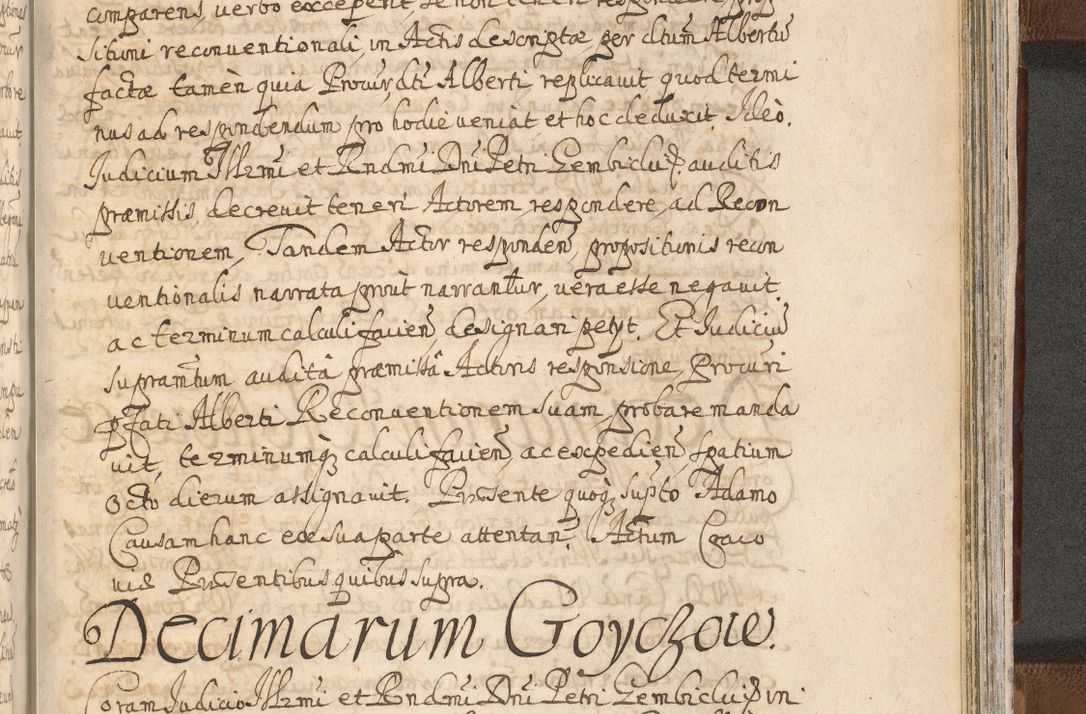 comparens, verbo excæperit se non teneri respondere, propo
sitioni reconventionali, in Actis descriptæ per dtum Albertũ
factæ tamèn quia Procur, dti Alberti replicavit quod termi
nus ad respondendum pro hodie veniat et hoc deduxit. Ideò.
Judicium Illrmi et Rndmi Dni Petri Gembicki P. auditis
præmissis, decrevit teneri Actorem, respondere, ad Recon
ventionem, Tandem Actor responden, propositionis recon
ventionalis narrata prout narrantur, vera esse negavit.
ac terminum calculi facien, designari petyt. Et Judiciũ
supramtum audita præmissa Actoris responsione, Procuri
pfati Alberti Reconventionem suam, probare manda
vit, terminumq calculi facien, ac expedien, spatium
octo dierum assignavit. Præsente quoq, supto Adamo
Causam hanc ex sua parte attentan. Actum Craco
viæ Præsentibus quibus supra.
Decimarum Goyczow.
Coram Judicio Illrmi et Rndmi Dni Petri Gembicki P in